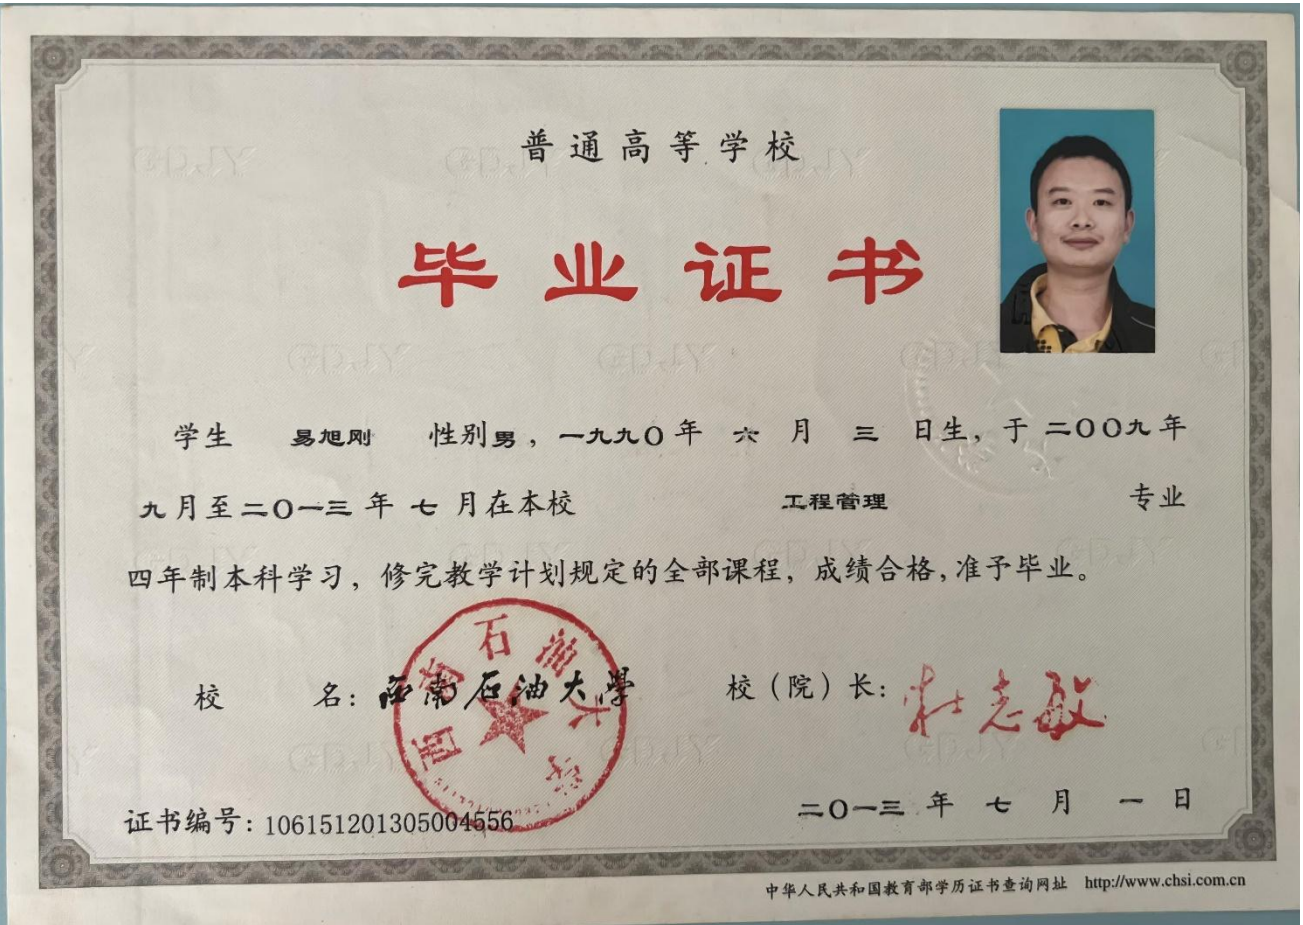 普通高等学校
毕业证书
学生 易旭刚 性别男，一九九〇年 六 月 三 日生，于二〇〇九年
九月至二〇一三年 七 月在本校 工程管理 专业
四年制本科学习，修完教学计划规定的全部课程，成绩合格，准予毕业。
校 名：西南石油大學 校（院）长：杜志敏
西南石油大学
证书编号：106151201305004556 二〇一三 年 七 月 一 日
中华人民共和国教育部学历证书查询网址 http://www.chsi.com.cn